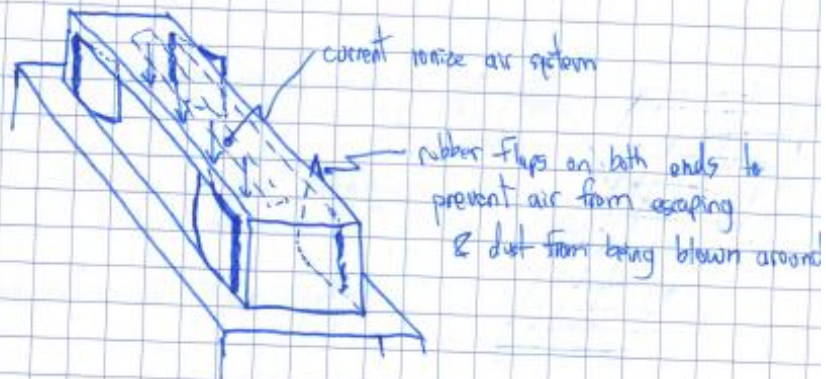 current ionize air system
rubber flaps on both ends to
prevent air from escaping
& dust from being blown around